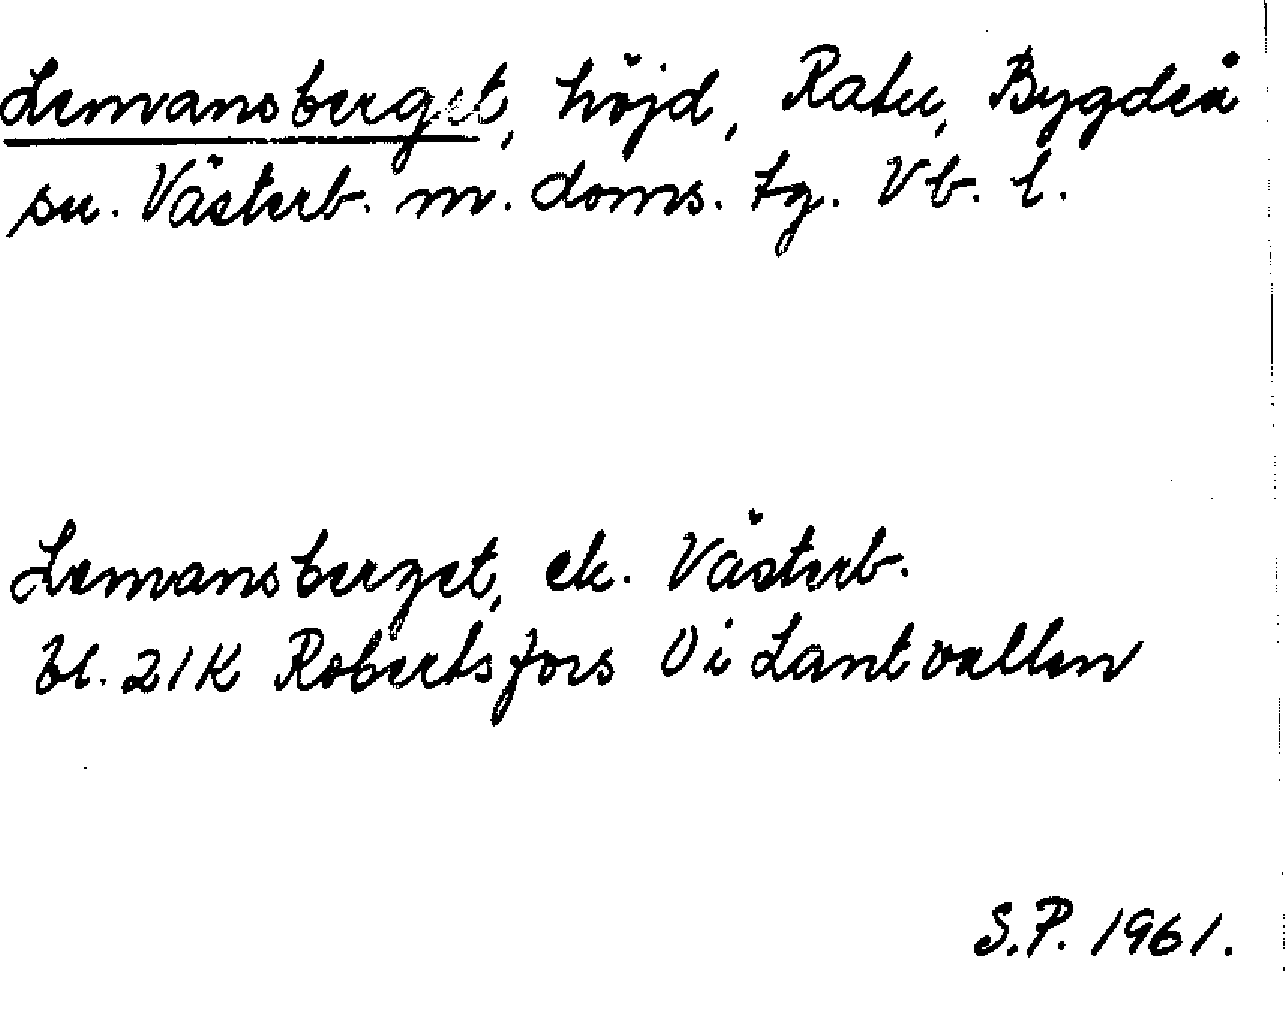 Lemansberget, höjd, Ratu, Bygdeå
sn. Västerb. m. doms. tg. Vb. l.
Lemansberget, ek. Västerb.
bl. 21K Robertsfors O i Lantvallen
S.P. 1961.